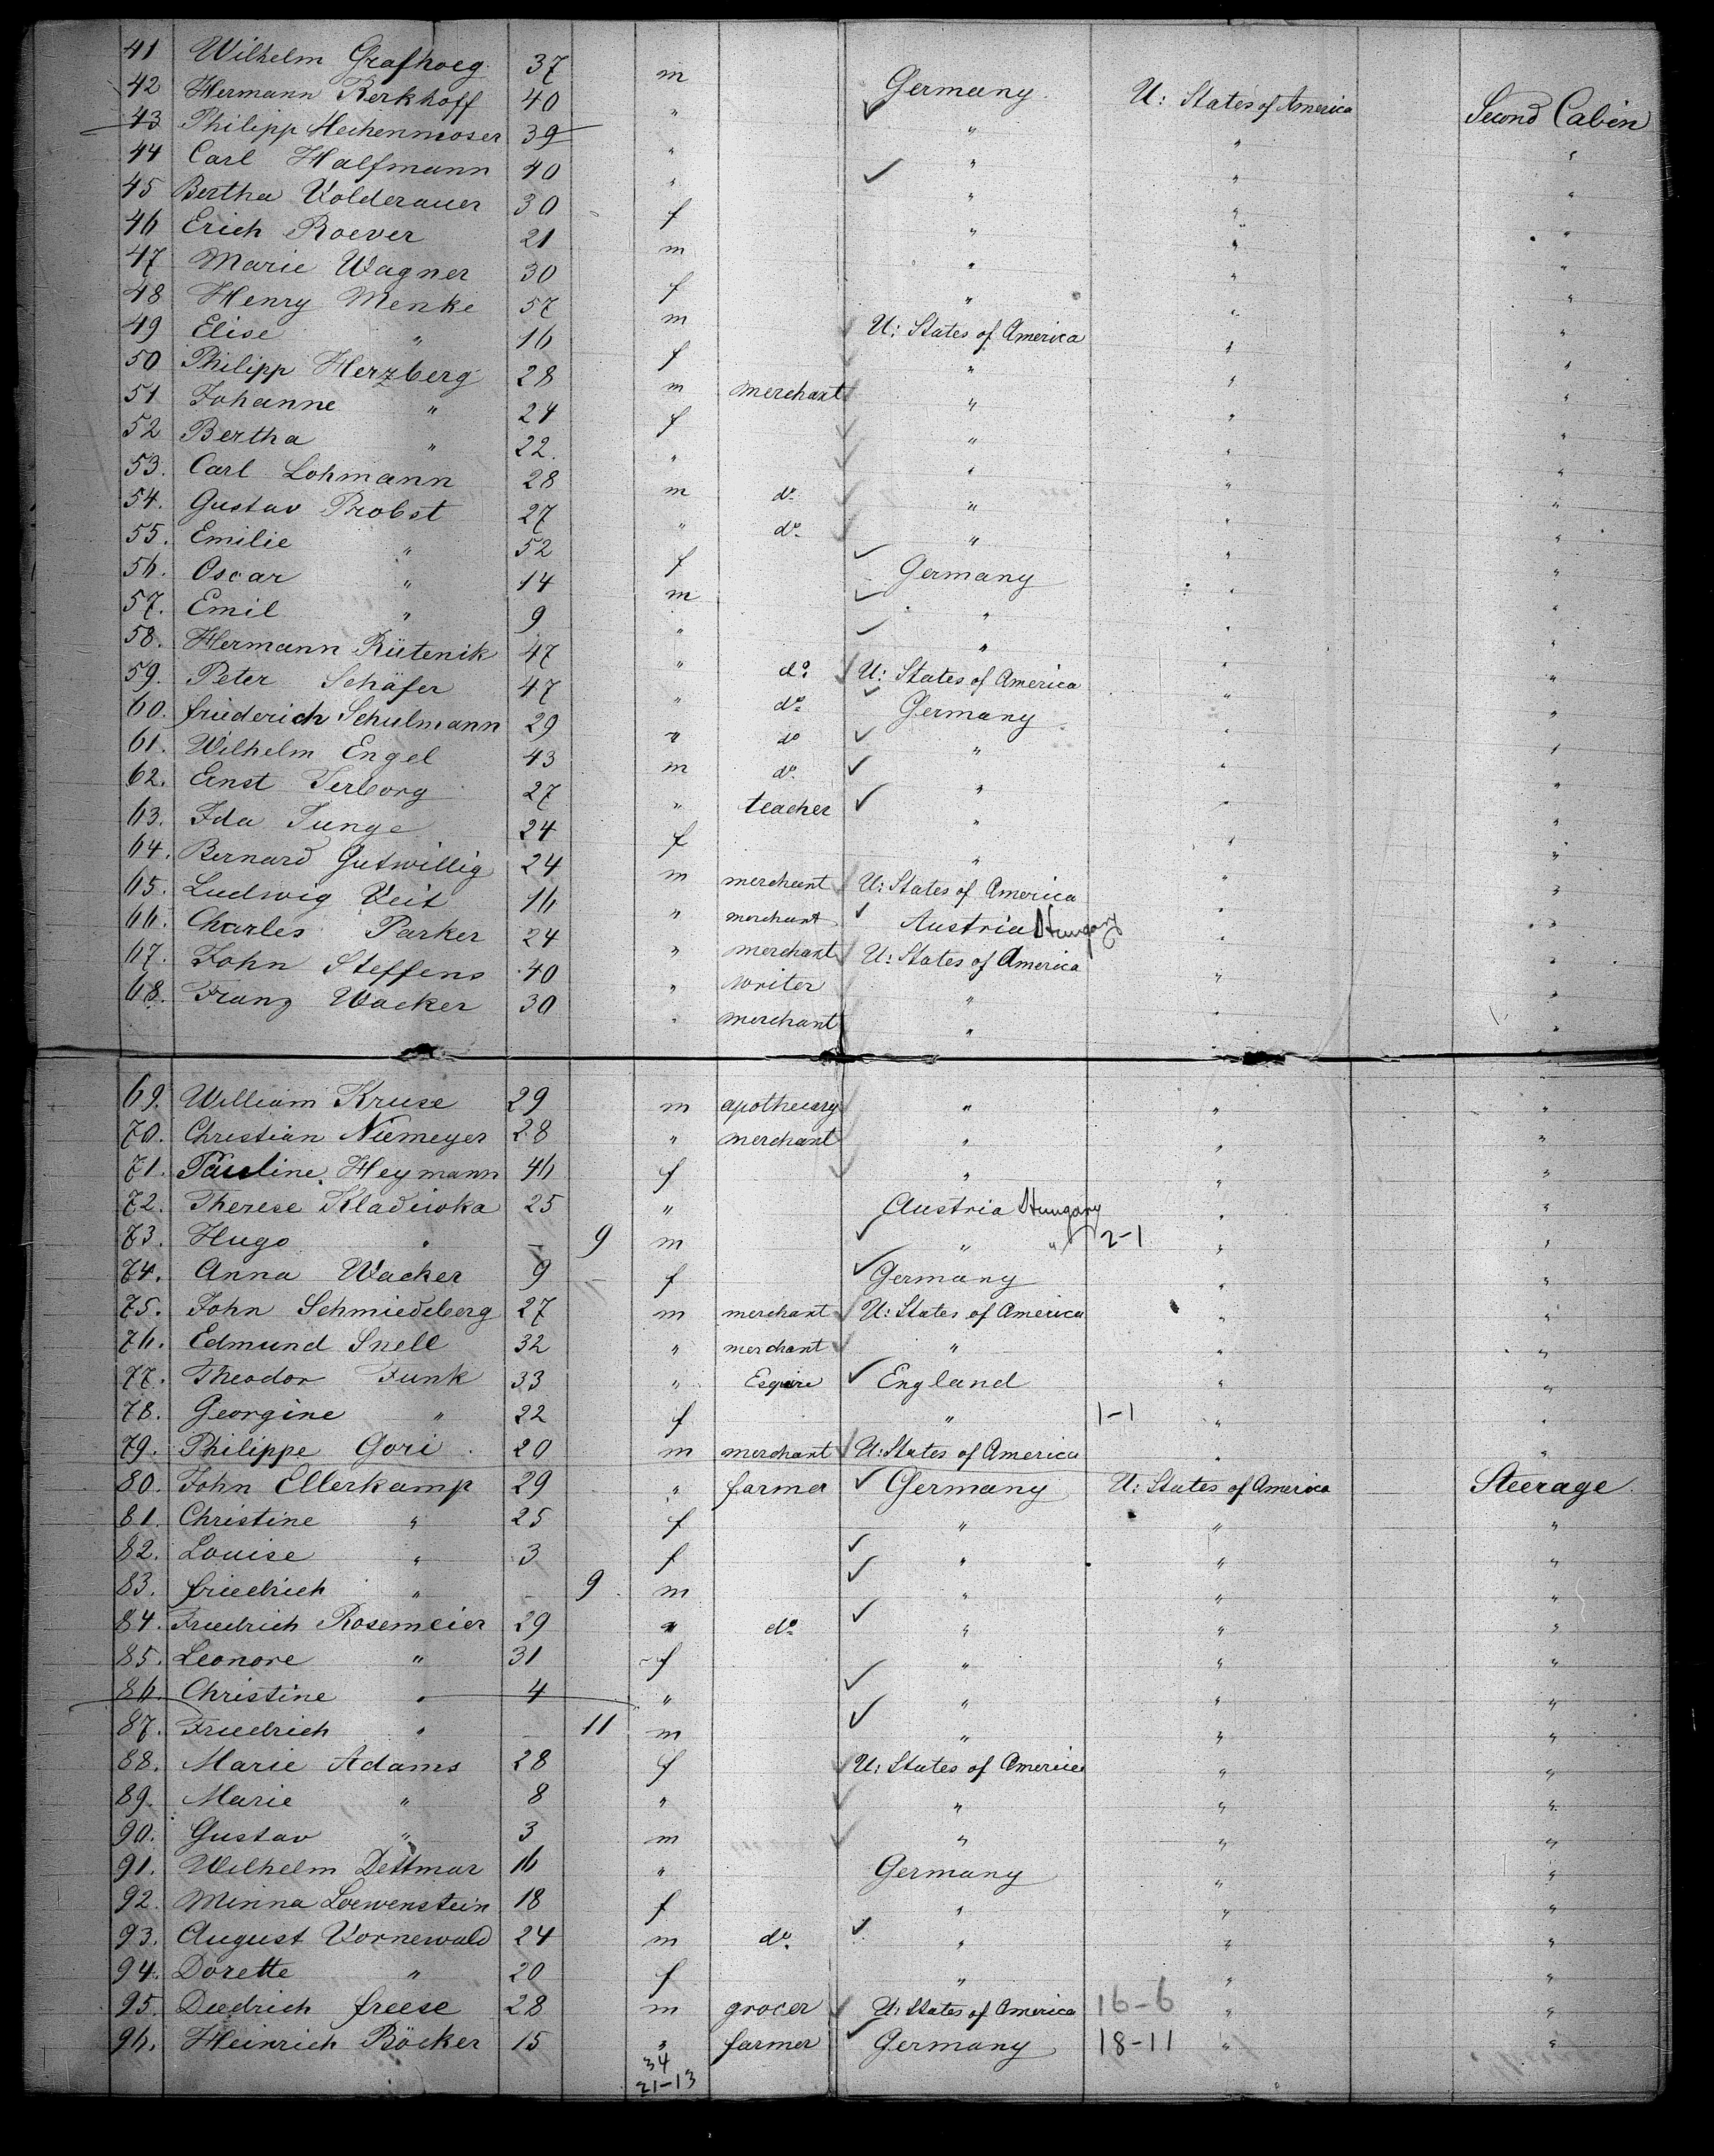 41 Wilhelm Grafhoeg 37 m Germany U: States of America Second Cabin
42 Hermann Berkhoff 40 " " " "
43 Philipp Heihenmoser 39 " " " "
44 Carl Halfmann 40 " " " "
45 Bertha Volderauer 30 f " " "
46 Erich Roever 21 m " " "
47 Marie Wagner 30 f " " "
48 Henry Menke 57 m U: States of America " "
49 Elise " 16 f " " "
50 Philipp Herzberg 28 m merchant " " "
51 Johanne " 24 f " " "
52 Bertha " 22. " " " "
53. Carl Lohmann 28 m do. " " "
54. Gustav Probst 27 " do. " " "
55. Emilie " 52 f Germany " "
56. Oscar " 14 m " " "
57. Emil " 9 " " " "
58. Hermann Rütenik 47 " do. U: States of America " "
59. Peter Schäfer 47 " do. Germany " "
60. Friederich Schulmann 29 " do " " "
61. Wilhelm Engel 43 m do. " " "
62. Ernst Terborg 27 " teacher " " "
63. Ida Junge 24 f " " "
64. Bernard Gutwillig 24 m merchant U: States of America " "
65. Ludwig Veit 16 " merchant Austria Hungary " "
66. Charles Parker 24 " merchant U: States of America " "
67. John Steffens 40 " writer " " "
68. Franz Wacker 30 " merchant " " "
69. William Kruse 29 m apothecary " " "
70. Christian Niemeyer 28 " merchant " " "
71. Pauline Heymann 46 f " " "
72. Therese Kladiwka 25 " Austria Hungary " "
73. Hugo " – 9 m " " 2-1 " "
74. Anna Wacker 9 – f Germany " "
75. John Schmiedeberg 27 m merchant U: States of America " "
76. Edmund Snell 32 " merchant " " "
77. Theodor Funk 33 " Esquire England " "
78. Georgine " 22 f " 1-1 " "
79. Philippe Gori 20 m merchant U: States of America " "
80. John Ellerkamp 29 " farmer Germany U: States of America Steerage
81. Christine " 25 f " " "
82. Louise " 3 f " " "
83. Friedrich " – 9 m " " "
84. Friedrich Rosemeier 29 " do. " " "
85. Leonore " 31 f " " "
86. Christine " 4 " " " "
87. Friedrich " – 11 m " " "
88. Marie Adams 28 f U: States of America " "
89. Marie " 8 " " " "
90. Gustav " 3 m " " "
91. Wilhelm Dettmar 16 " Germany " "
92. Minna Loewenstein 18 f " " "
93. August Vornewald 24 m do. " " "
94. Dorette " 20 f " " "
95. Diedrich Freese 28 m grocer U: States of America 16-6 " "
96. Heinrich Böcker 15 " farmer Germany 18-11 " "
34
21-13